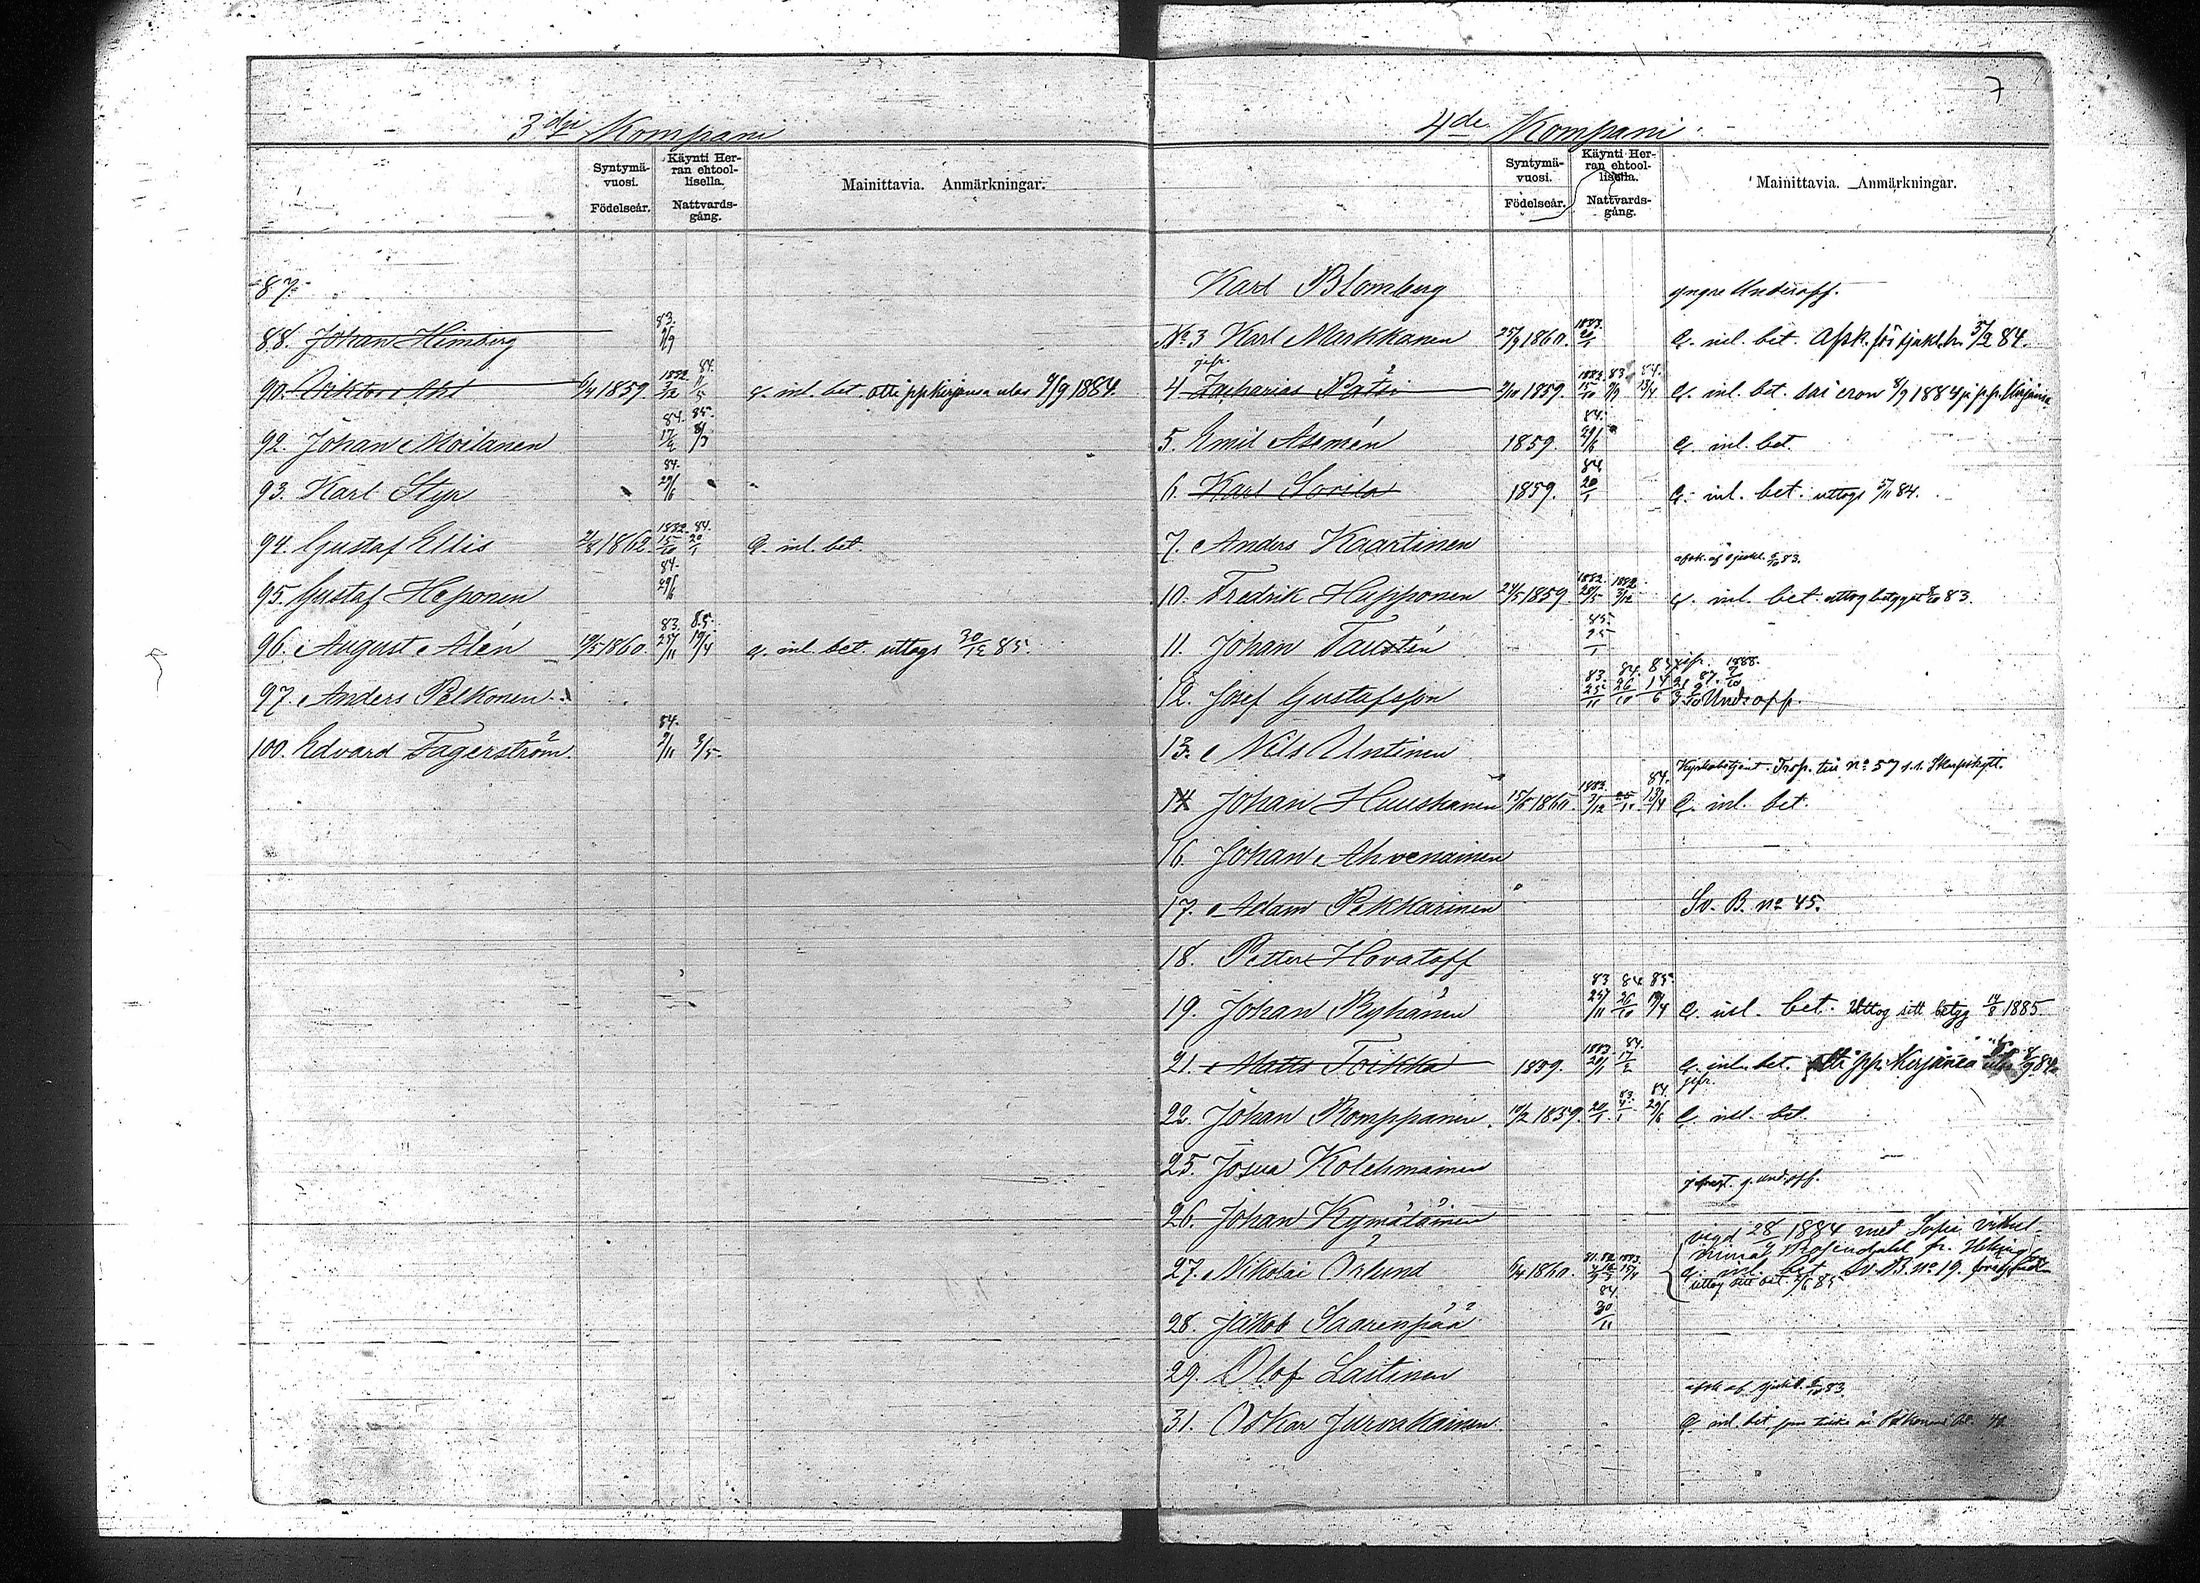 3dje Kompani
Syntymä-
vuosi.
Födelseår.
Käynti Her-
ran ehtool-
lisella.
Nattvards-
gång.
Mainittavia. Anmärkningar.
87.
88. Johan Himberg 83. 9/9
90. Viktor 6/4 1859. 1882. 3/12 84. 11/5 q. inl. bet. otti ppkirjansa ulos 8/9 1884.
92. Johan Moilanen 84. 17/2 85.
93. Karl Styr 84. 29/6
94. Gustaf Ellis 2/8 1862. 1882. 15/10 84. 20/1 q. inl. bet.
95. Gustaf Heponen 84. 29/6
96. August Alén 19/5 1860. 83. 25/11 85. 19/4 q. inl. bet. uttogs 30/12 85.
97. Anders Pelkonen
100. Edvard Fagerström. 84. 2/11 2/5.
7
4de Kompani
Syntymä-
vuosi.
Födelseår.
Käynti Her-
ran ehtool-
lisella.
Nattvards-
gång.
Mainittavia. Anmärkningar.
Karl Blomberg yngre Underoff.
No 3 Karl Markkanen 25/9 1860. 1883. 20/1 q. inl. bet. Afsk. för sjukl. 5/2 84.
gefr.
4 Zacharias 2/10 1859. 1882. 15/10 83. 9/9 84. 13/4 q. inl. bet. sai eron 8/9 1884
5. Emil Asemén 1859. 84. 29/6 q. inl. bet.
6. Karl Sorila 1859. 84. 20/1 q. inl. bet. uttogs 5/11 84.
7. Anders Kaartinen
afsk. af sjukl. 9/10 83.
10. Fredrik Hupponen 24/5 1859. 1882. 28/5 1882. 3/12 q. inl. bet. uttog betyget 83.
11. Johan Taustén 85. 25/1
12. Josef Gustafsson 83. 25/11 84. 26/10 14/6 gefr. 1888. 87. Undroff.
13. Nils Untinen
Kyrkobetjent. Trsp. till no 57
14 Johan Huuskanen 15/8 1860. 1882. 3/12 84. 13/4 q. inl. bet.
16. Johan Ahvenainen
17. Adam Pekkarinen Sv. B. no 45.
18. Petter Hovatoff
19. Johan Ryhänen 83 25/11 84 26/10 85 19/4 q. inl. bet. Uttog sitt betyg 14/8 1885
21. Matts Toikka 1859. 1883. 20/1 84. 17/2 q. inl. bet. otti pp. Kirjansa ulos 8/9 84
gefr.
22. Johan Romppanen. 10/2 1859. 20/1 83. 4/1 84. 29/6 q. inl. bet.
25. Josua Kolehmainen
und.off.
26. Johan Kymäläinen
vigd 28/9 1884 med Sofia Vilhel-
mina Rosendahl fr. Helsingfors
27. Nikolai Örlund 6/4 1860. 1883. 15/4 q. inl. bet. Sv. B. no 19.
uttog sitt bet. 85
28. Jakob Saarenpää 84. 30/11
29. Olof Laitinen
afsk af sjukl. 9/10 83.
31. Oskar Jurvakainen. q. inl. bet.